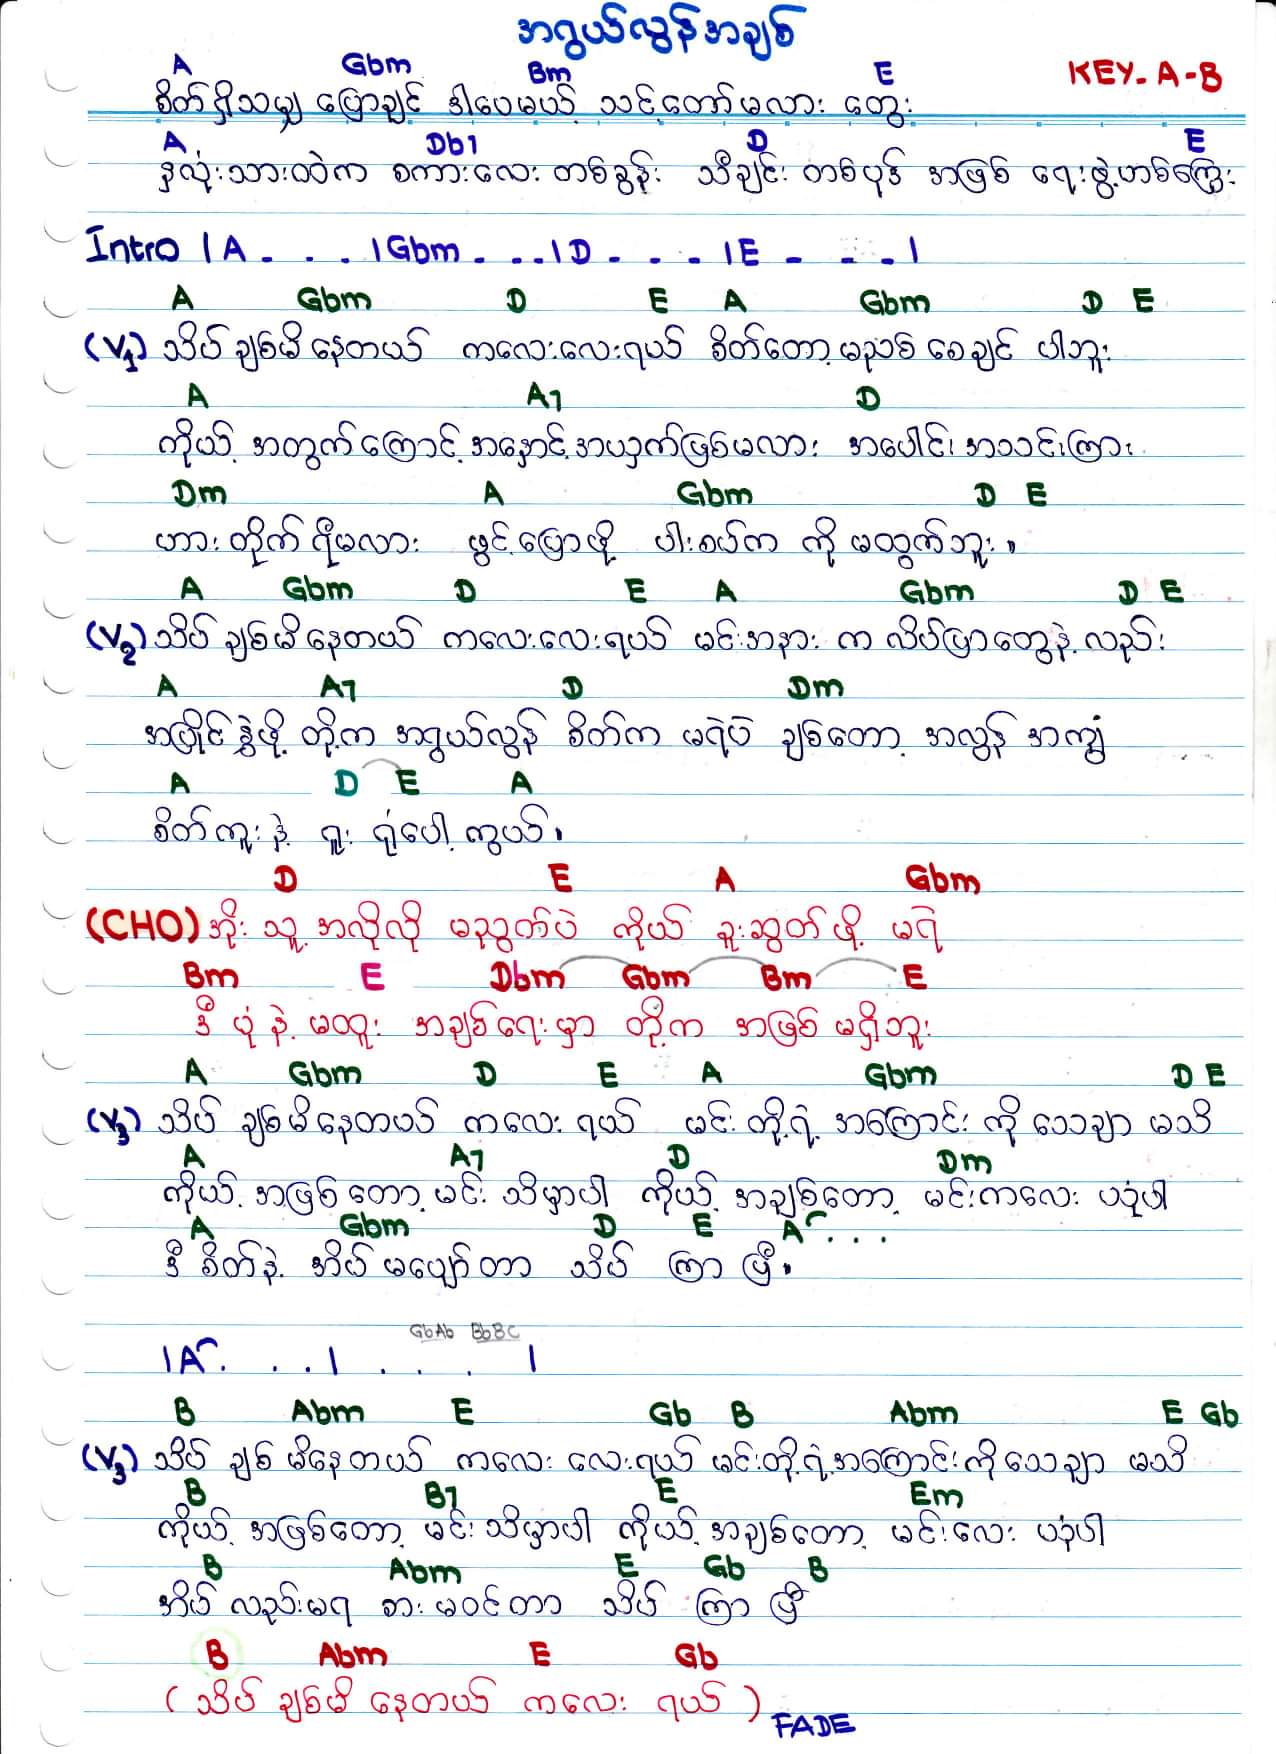 အရွယ်လွန်အချစ်
KEY-A-B
A Gbm Bm E
စိတ်ရှိသမျှ ပြောချင် ဒါပေမယ့် သင့်တော်မလား တွေး
A Db7 D E
နှလုံးသားထဲက စကားလေး တစ်ခွန်း သီချင်း တစ်ပုဒ် အဖြစ် ရေးဖွဲ့ဟစ်ကြွေး
Intro | A . . . | Gbm . . . | D . . . | E . . . |
A Gbm D E A Gbm D E
(V1) သိပ်ချစ်မိနေတယ် ကလေးလေးရယ် စိတ်တော့မညစ်စေချင် ပါဘူး
A A7 D
ကိုယ့် အတွက်ကြောင့် အနှောင့်အယှက်ဖြစ်မလား အပေါင်းအသင်းကြား
Dm A Gbm D E
ဟားတိုက်ရီမလား ဖွင့်ပြောဖို့ ပါးစပ်က ကို မထွက်ဘူး။
A Gbm D E A Gbm D E
(V2) သိပ်ချစ်မိနေတယ် ကလေးလေးရယ် မင်းအနား က လိပ်ပြာတွေနဲ့လည်း
A A7 D Dm
အပြိုင်နွှဲဖို့ တို့က အရွယ်လွန် စိတ်က မရဲပဲ ချစ်တော့ အလွန် အကျွံ
A D E A
စိတ်ကူးနဲ့ ရူး ရုံပေါ့ကွယ်။
D E A Gbm
(CHO) အိုး သူ့အလိုလို မညွတ်ပဲ ကိုယ် ခူးဆွတ်ဖို့ မရဲ
Bm E Dbm Gbm Bm E
ဒီ ပုံနဲ့ မထူး အချစ်ရေးမှာ တို့က အဖြစ် မရှိဘူး
A Gbm D E A Gbm D E
(V3) သိပ် ချစ်မိနေတယ် ကလေး ရယ် မင်း တို့ရဲ့ အကြောင်း ကို သေချာ မသိ
A A7 D Dm
ကိုယ့် အဖြစ်တော့ မင်း သိမှာပါ ကိုယ့် အချစ်တော့ မင်းကလေး ယုံပါ
A Gbm D E A . . .
ဒီ စိတ်နဲ့ အိပ်မပျော်တာ သိပ် ကြာ ပြီ။
GbAb BbBC
| A . . . | . . . . |
B Abm E Gb B Abm E Gb
(V3) သိပ် ချစ် မိနေတယ် ကလေး လေးရယ် မင်းတို့ရဲ့အကြောင်းကိုသေချာ မသိ
B B7 E Em
ကိုယ့် အဖြစ်တော့ မင်း သိမှာပါ ကိုယ့် အချစ်တော့ မင်းလေး ယုံပါ
B Abm E Gb B
အိပ် လည်းမရ စား မဝင်တာ သိပ် ကြာ ပြီ
B Abm E Gb
( သိပ် ချစ်မိ နေတယ် ကလေး ရယ် )
FADE